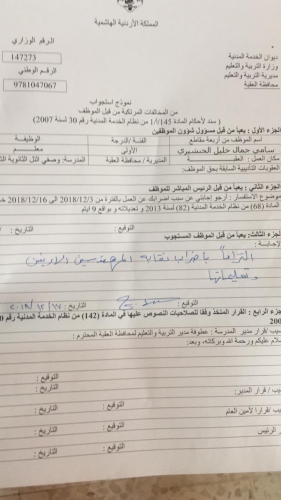 المملكة الأردنية الهاشمية
الرقم الوزاري
147273
الرقم الوطني
9781047067
ديوان الخدمة المدنية
وزارة التربية والتعليم
مديرية التربية والتعليم
محافظة العقبة
نموذج استجواب
عن المخالفات المرتكبة من قبل الموظف
( سنداً لأحكام المادة 1/145 من نظام الخدمة المدنية رقم 30 لسنة 2007)
الجزء الأول : يعبأ من قبل مسؤول شؤون الموظفين
اسم الموظف من أربعة مقاطع
الفئة/الدرجة
الوظيفة
سامي جمال خليل
الأولى
معلم
مكان العمل : العقبة
المديرية / محافظة العقبة
المدرسة: وصفي التل الثانوية
العقوبات التأديبية السابقة بحق الموظف:
الجزء الثاني : يعبأ من قبل الرئيس المباشر للموظف
موضوع الاستفسار : أرجو إجابتي عن سبب اضرابك عن العمل بالفترة من 2018/12/3 الى 2018/12/16
المادة (68) من نظام الخدمة المدنية (82) لسنة 2013 و تعديلاته و بواقع 9 ايام
التوقيع :
التاريخ :
الجزء الثالث: يعبأ من قبل الموظف المستجوب
الإجابة :
التزاماً باضراب نقابة المهندسين الاردنيين
وتعليماتها
التوقيع :
التاريخ : ٢٠١٨/١٢/١٧
جزء الرابع : القرار المتخذ وفقا للصلاحيات النصوص عليها في المادة (142) من نظام الخدمة المدنية رقم
قرار مدير المدرسة : عطوفة مدير التربية والتعليم لمحافظة العقبة المحترم :
السلام عليكم ورحمة الله وبركاته، وبعد:
التوقيع :
التاريخ :
قرار المدير:
التوقيع :
التاريخ :
قرار الأمين العام
التوقيع :
التاريخ :
الرئيس
التوقيع :